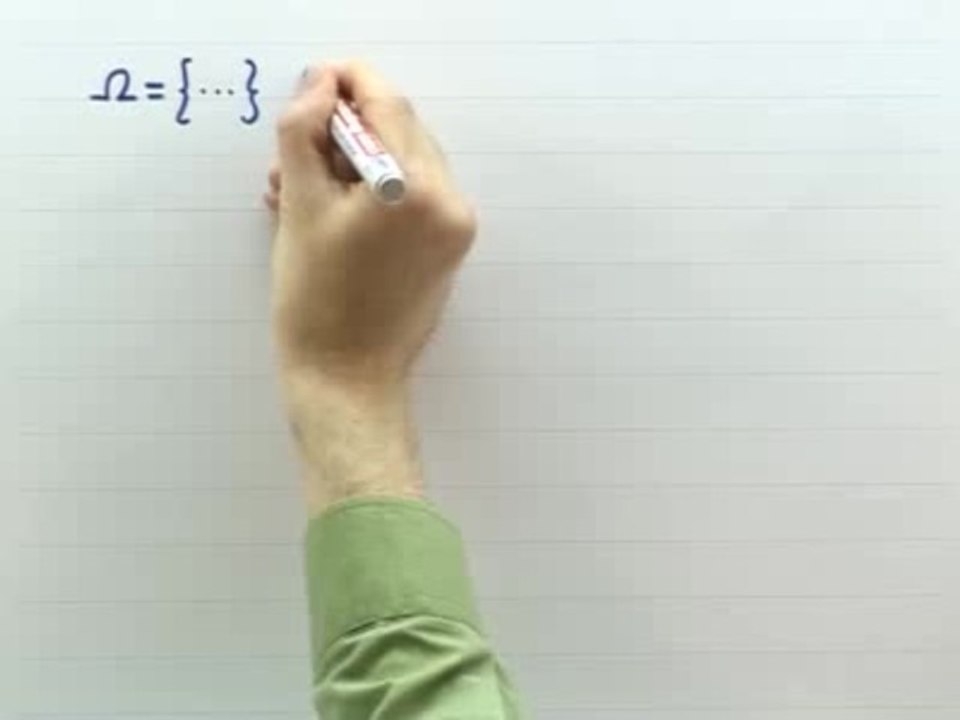 Ω = {⋯}